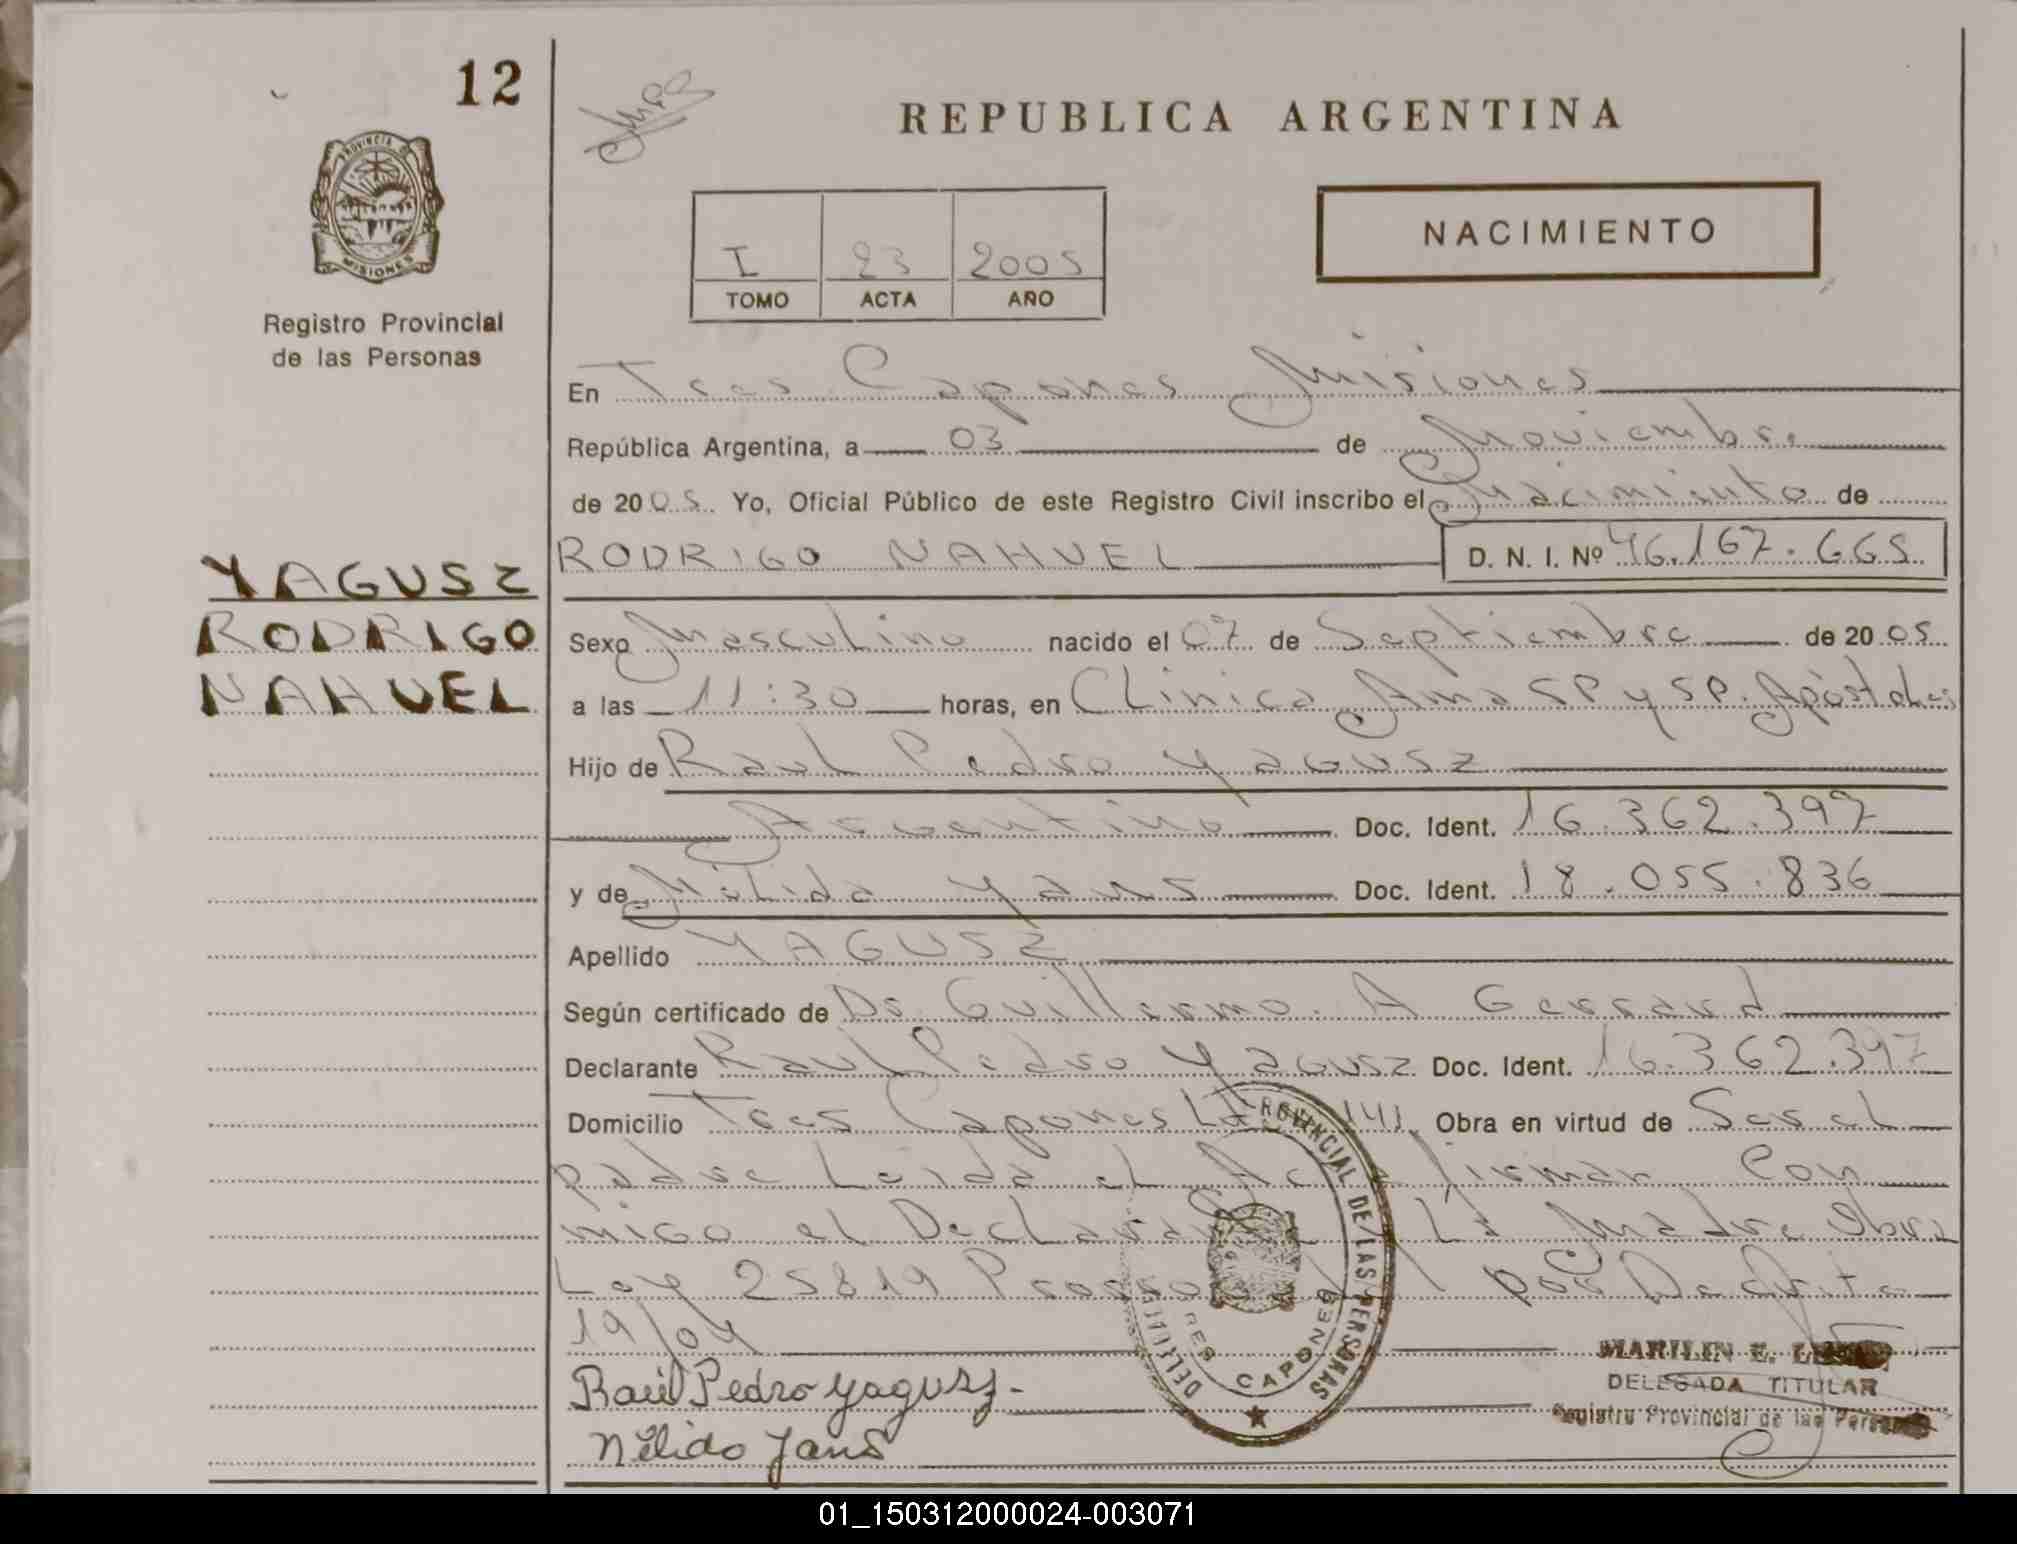 12
REPUBLICA ARGENTINA
PROVINCIA DE
MISIONES
Registro Provincial
de las Personas
NACIMIENTO
I 23 2005
TOMO ACTA AÑO
En Tres Capones Misiones
República Argentina, a 03 de Noviembre
de 2005. Yo, Oficial Público de este Registro Civil inscribo el Nacimiento de
YAGUSZ
RODRIGO
NAHUEL
RODRIGO NAHUEL D. N. I. Nº 46.167.665
Sexo Masculino nacido el 07 de Septiembre de 2005
a las 11:30 horas, en Clinica SP y SP. Apóstoles
Hijo de Raul Pedro Yagusz
Argentino Doc. Ident. 16.362.397
y de Nélida Yans Doc. Ident. 18.055.836
Apellido YAGUSZ
Según certificado de Dr Guillermo. A Gerrard
Declarante Raul Pedro Yagusz Doc. Ident. 16.362.397
Domicilio Tres Capones 141. Obra en virtud de Ser el
padre Leida el firman Con
migo el y La Madre Obra
Ley 25819 por Decreto
19/04
Raúl Pedro Yagusz-
Nélida Yans
PROVINCIAL DE LAS PERSONAS
TRES CAPONES
MARILIN E.
DELEGADA TITULAR
Registro Provincial de las Personas
01_150312000024-003071